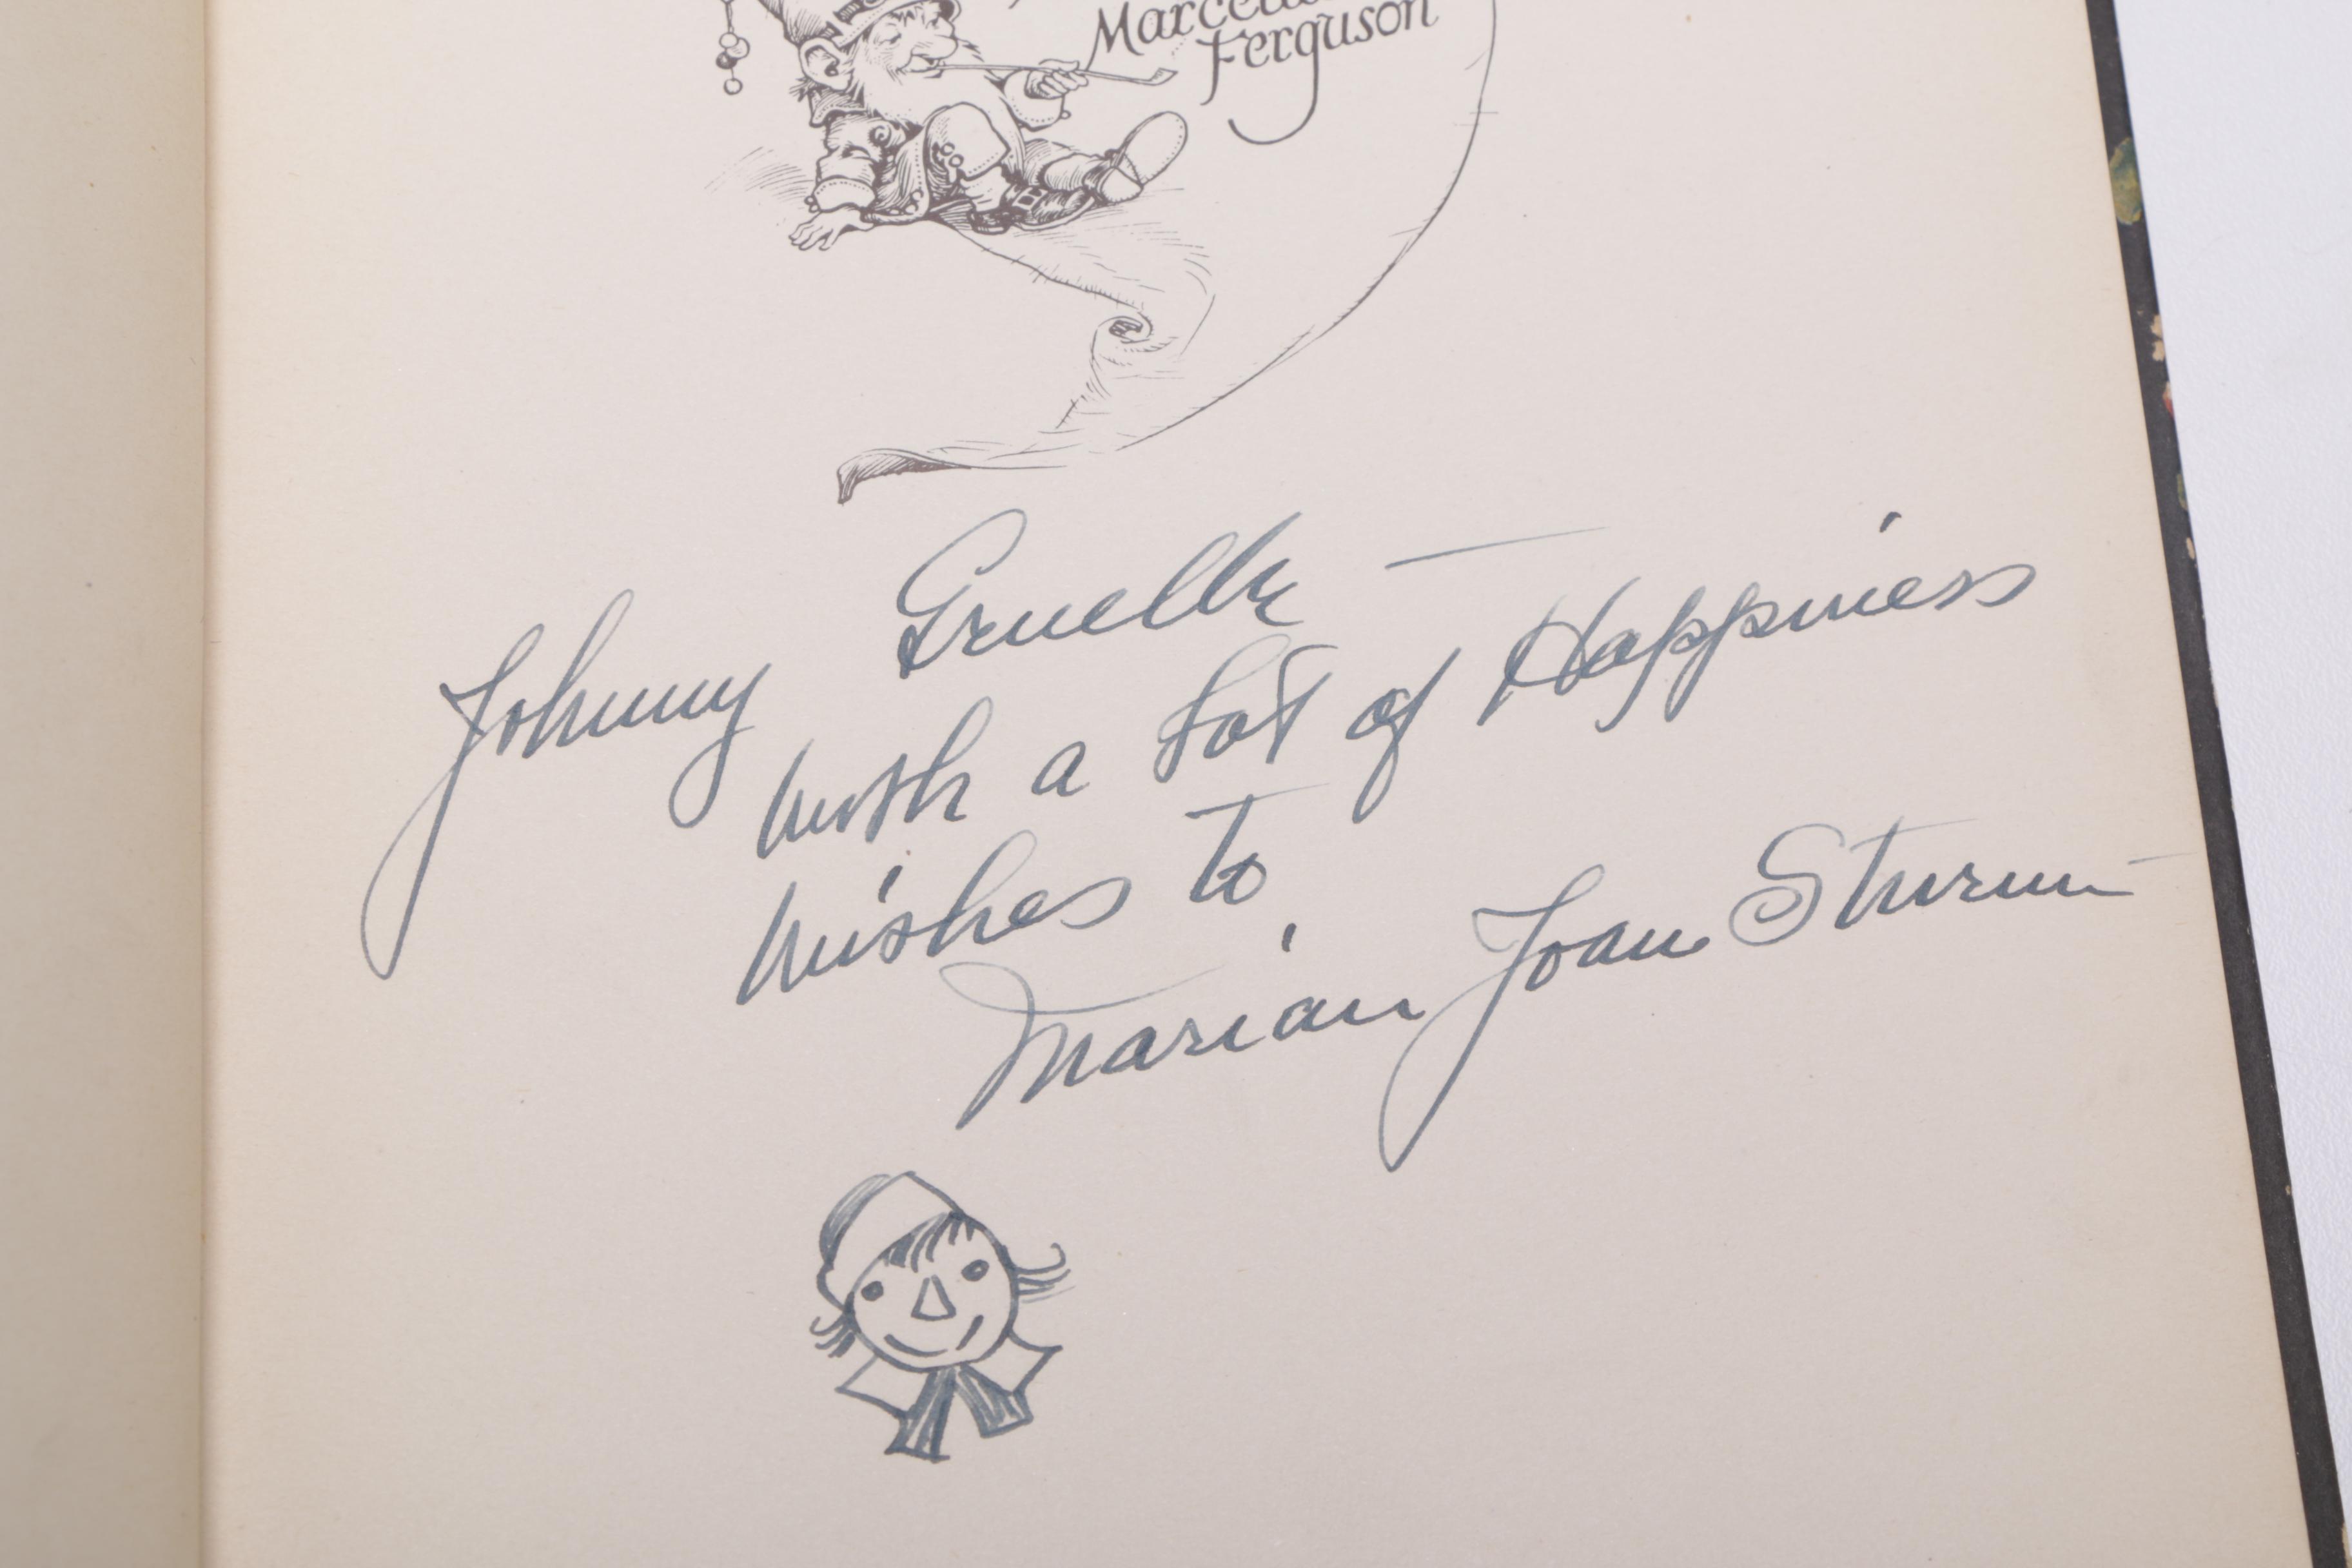 Ferguson
Johnny Gruelle —
With a Lot of Happiness
Wishes to
Marian Joan Sturm